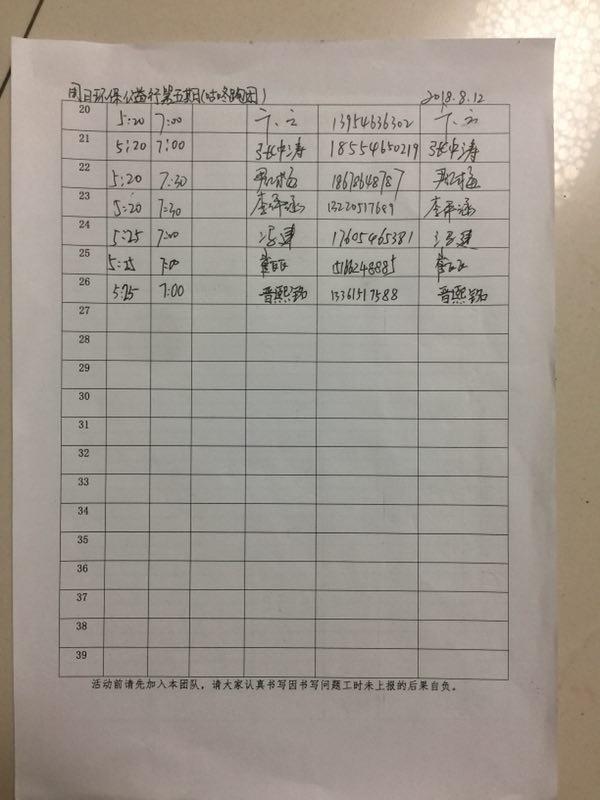 周日环保公益行第五期(咕咚跑团) 2018.8.12
20 5:20 7:00 13954636302
21 5:20 7:00 张中涛 18554650219 张中涛
22 5:20 7:30 18678648787
23 5:20 7:30 李泽涵 13220517699 李泽涵
24 5:25 7:00 冯建 17605465381 冯建
25 5:25 7:00 15166248885
26 5:25 7:00 晋熙铭 13361517588 晋熙铭
27
28
29
30
31
32
33
34
35
36
37
38
39
活动前请先加入本团队，请大家认真书写因书写问题工时未上报的后果自负。